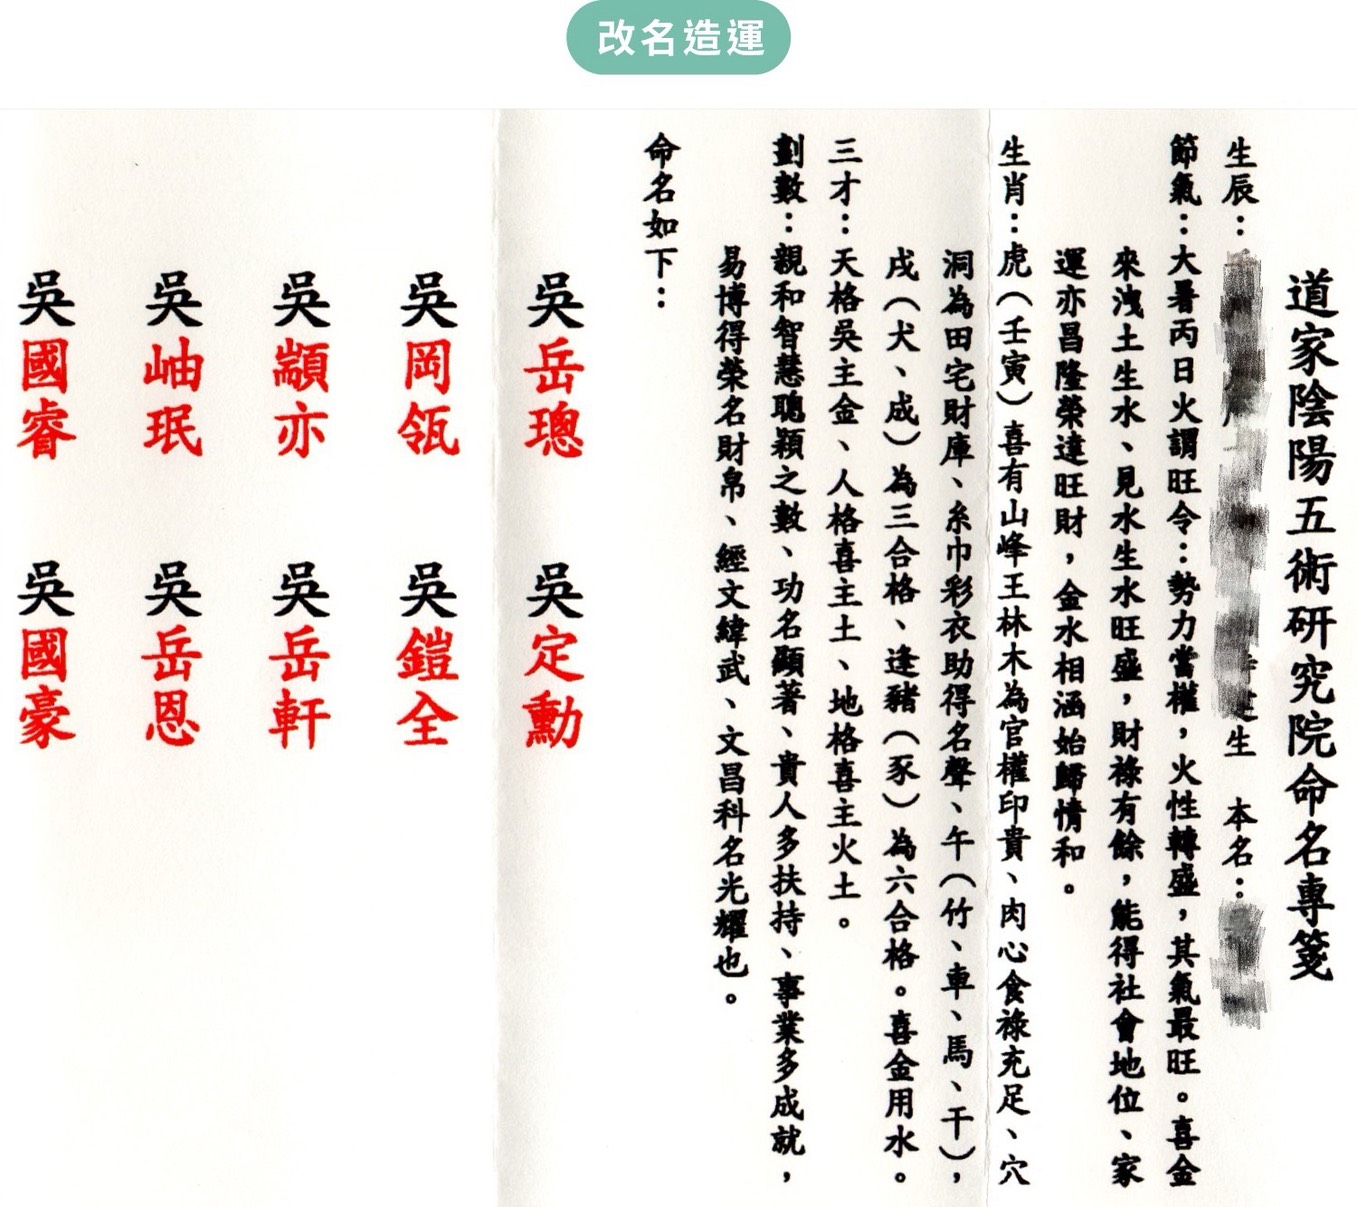 改名造運
道家陰陽五術研究院命名專箋
生辰：生　本名：
節氣：大暑丙日火謂旺令：勢力當權，火性轉盛，其氣最旺。喜金
來洩土生水、見水生水旺盛，財祿有餘，能得社會地位、家
運亦昌隆榮達旺財，金水相涵始歸情和。
生肖：虎（壬寅）喜有山峰王林木為官權印貴、肉心食祿充足、穴
洞為田宅財庫、糸巾彩衣助得名聲、午（竹、車、馬、干），
戌（犬、成）為三合格、逢豬（豕）為六合格。喜金用水。
三才：天格吳主金、人格喜主土、地格喜主火土。
劃數：親和智慧聰穎之數、功名顯著、貴人多扶持、事業多成就，
易博得榮名財帛、經文緯武、文昌科名光耀也。
命名如下：
吳岳璁　吳定勳
吳岡瓴　吳鎧全
吳顓亦　吳岳軒
吳岫珉　吳岳恩
吳國睿　吳國豪